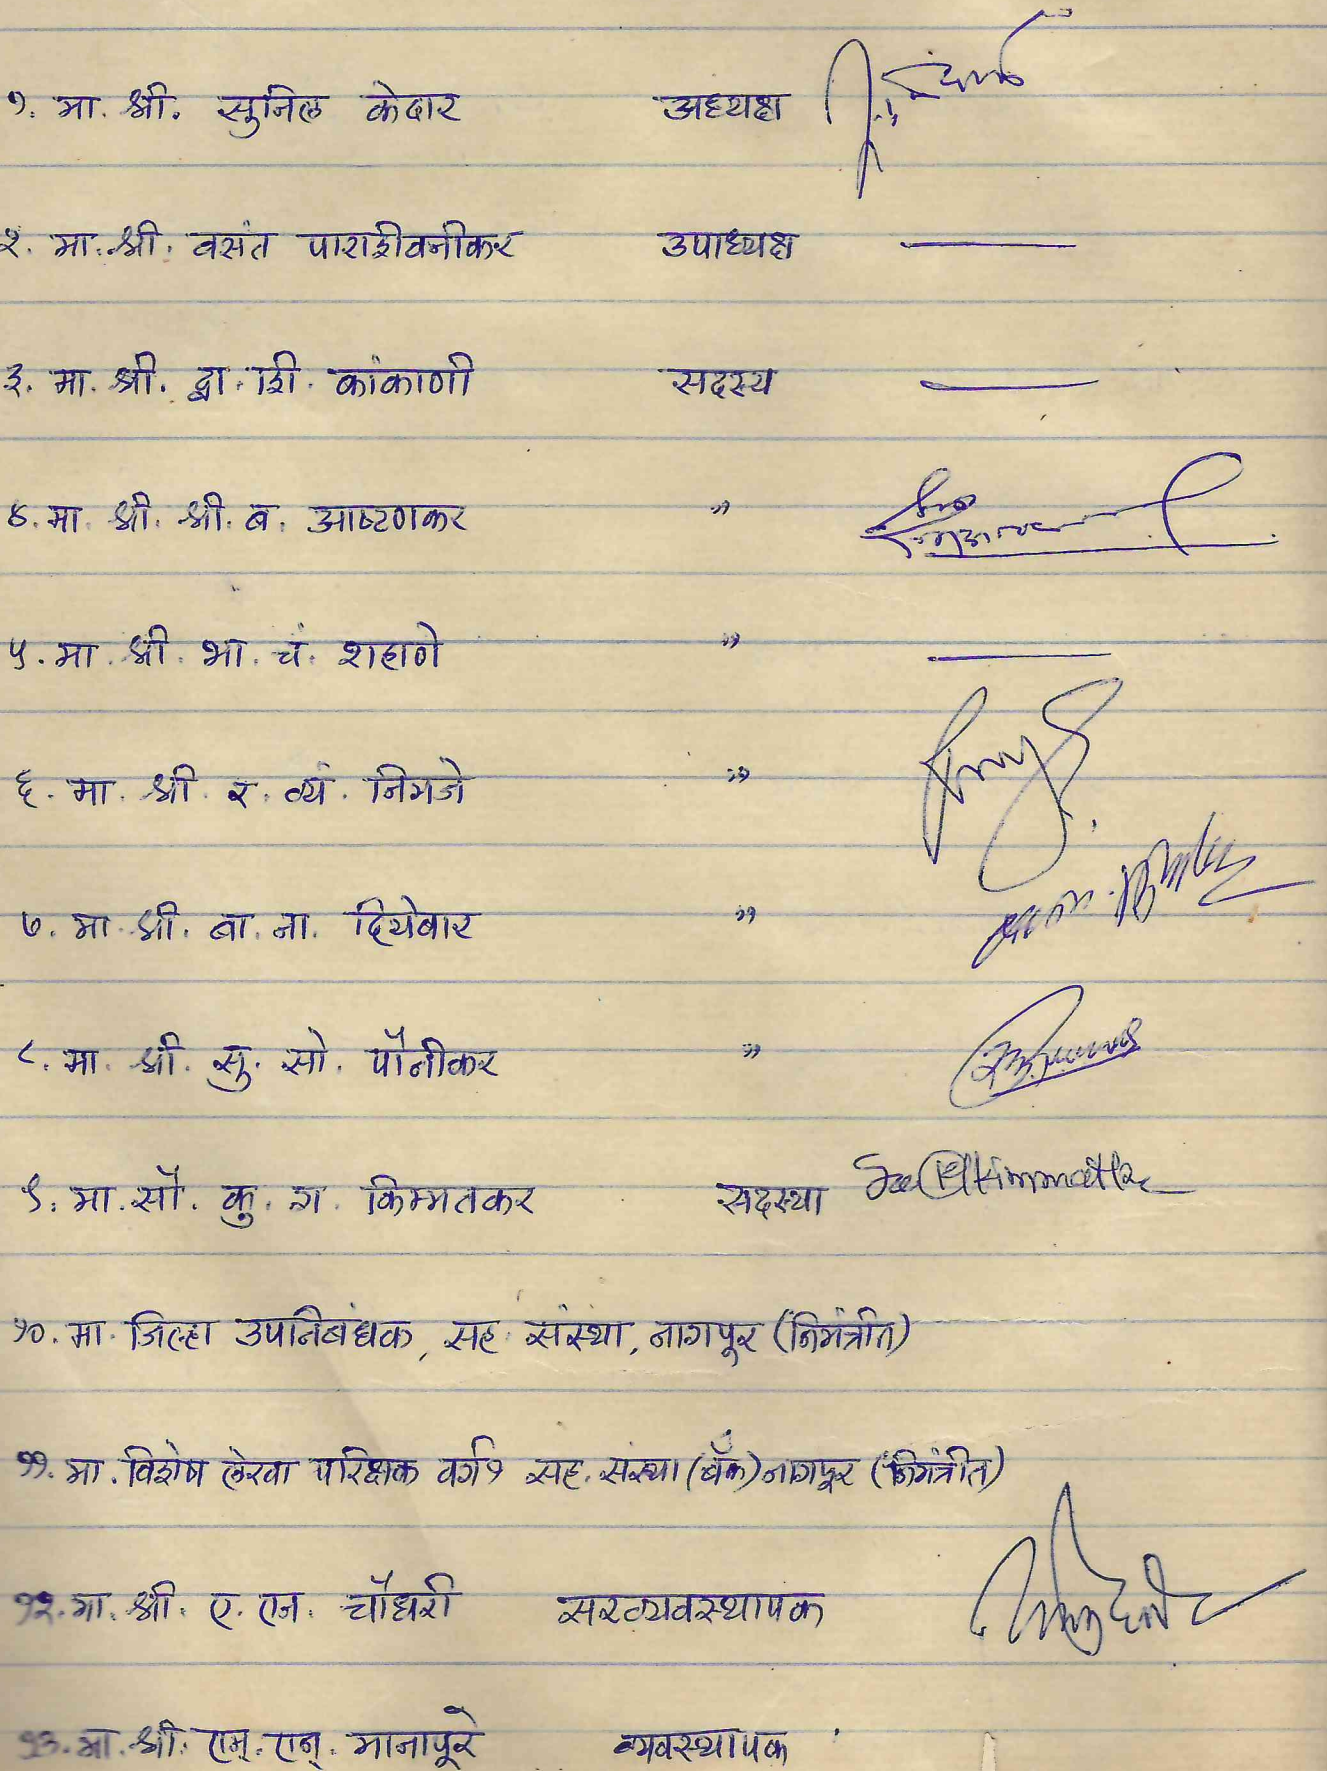 १. मा. श्री. सुनिल केदार अध्यक्ष
२. मा. श्री. वसंत पाराशीवनीकर उपाध्यक्ष
३. मा. श्री. द्वा. झी. कांकाणी सदस्य
४. मा. श्री. श्री. ब. आष्टणकर ,,
५. मा. श्री. भा. चं. शहाणे ,,
६. मा. श्री. र. व्यं. निमजे ,,
७. मा. श्री. बा. ना. दियेवार ,,
८. मा. श्री. सु. सो. पौनीकर ,,
९. मा. सौ. कु. ग. किम्मतकर सदस्या
१०. मा. जिल्हा उपनिबंधक, सह. संस्था, नागपूर (निमंत्रीत)
११. मा. विशेष लेखा परिक्षक वर्ग १ सह. संस्था (बँक) नागपूर (निमंत्रीत)
१२. मा. श्री. ए. एन. चौधरी सरव्यवस्थापक
१३. मा. श्री. एम्. एन्. मानापूरे व्यवस्थापक